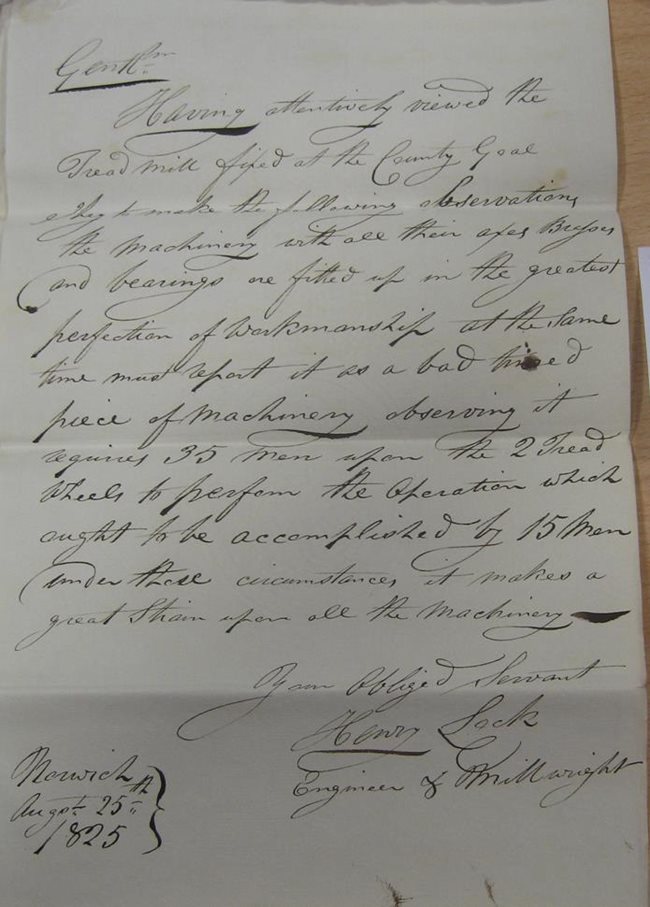 Gentlmn
Having attentively viewed the
Tread mill fixed at the County Goal
I beg to make the following observations
the machinery with all their axes Brasses
and bearings are fitted up in the greatest
perfection of workmanship at the same
time must report it as a bad timed
piece of machinery observing it
requires 35 men upon the 2 Tread
Wheels to perform the operation which
ought to be accomplished by 15 Men
under these circumstances it makes a
great Strain upon all the machinery
Your Obliged Servant
Henry Lock
Engineer & Millwright
Norwich
Augst 25th
1825